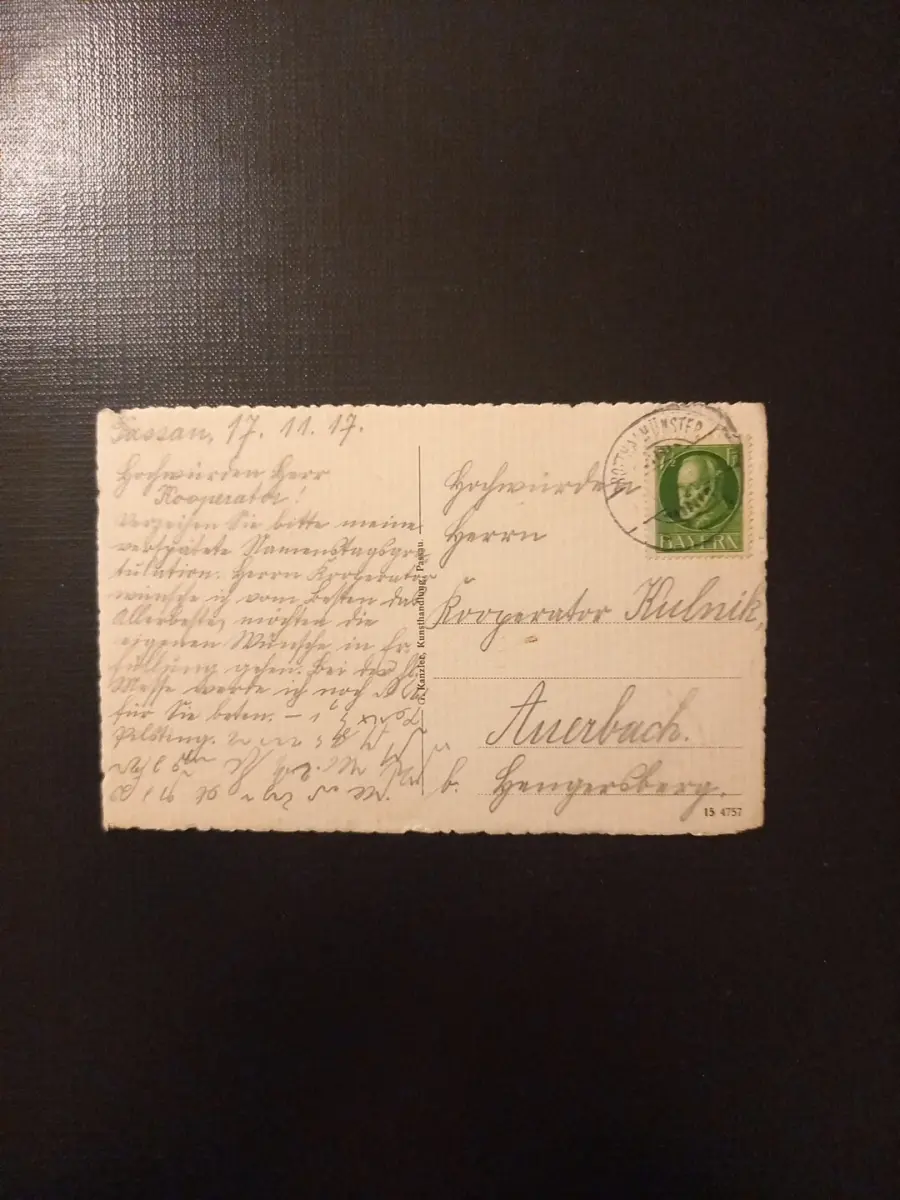 Passau, 17. 11. 17.
Hochwürden Herr
Kooperator!
Verzeihen Sie bitte meine
verspätete Namenstagsgra-
tulation. Herrn Kooperator
wünsche ich vom Besten das
Allerbeste, möchten die
eigenen Wünsche in Er-
füllung gehen. Bei der hl.
Messe werde ich noch
für Sie beten. –
Pilsting.
G. Kanzler, Kunsthandlung, Passau.
ROTTHALMÜNSTER
7½
BAYERN
Hochwürden
Herrn
Kooperator Kulnik,
Auerbach.
b. Hengersberg.
15 4757